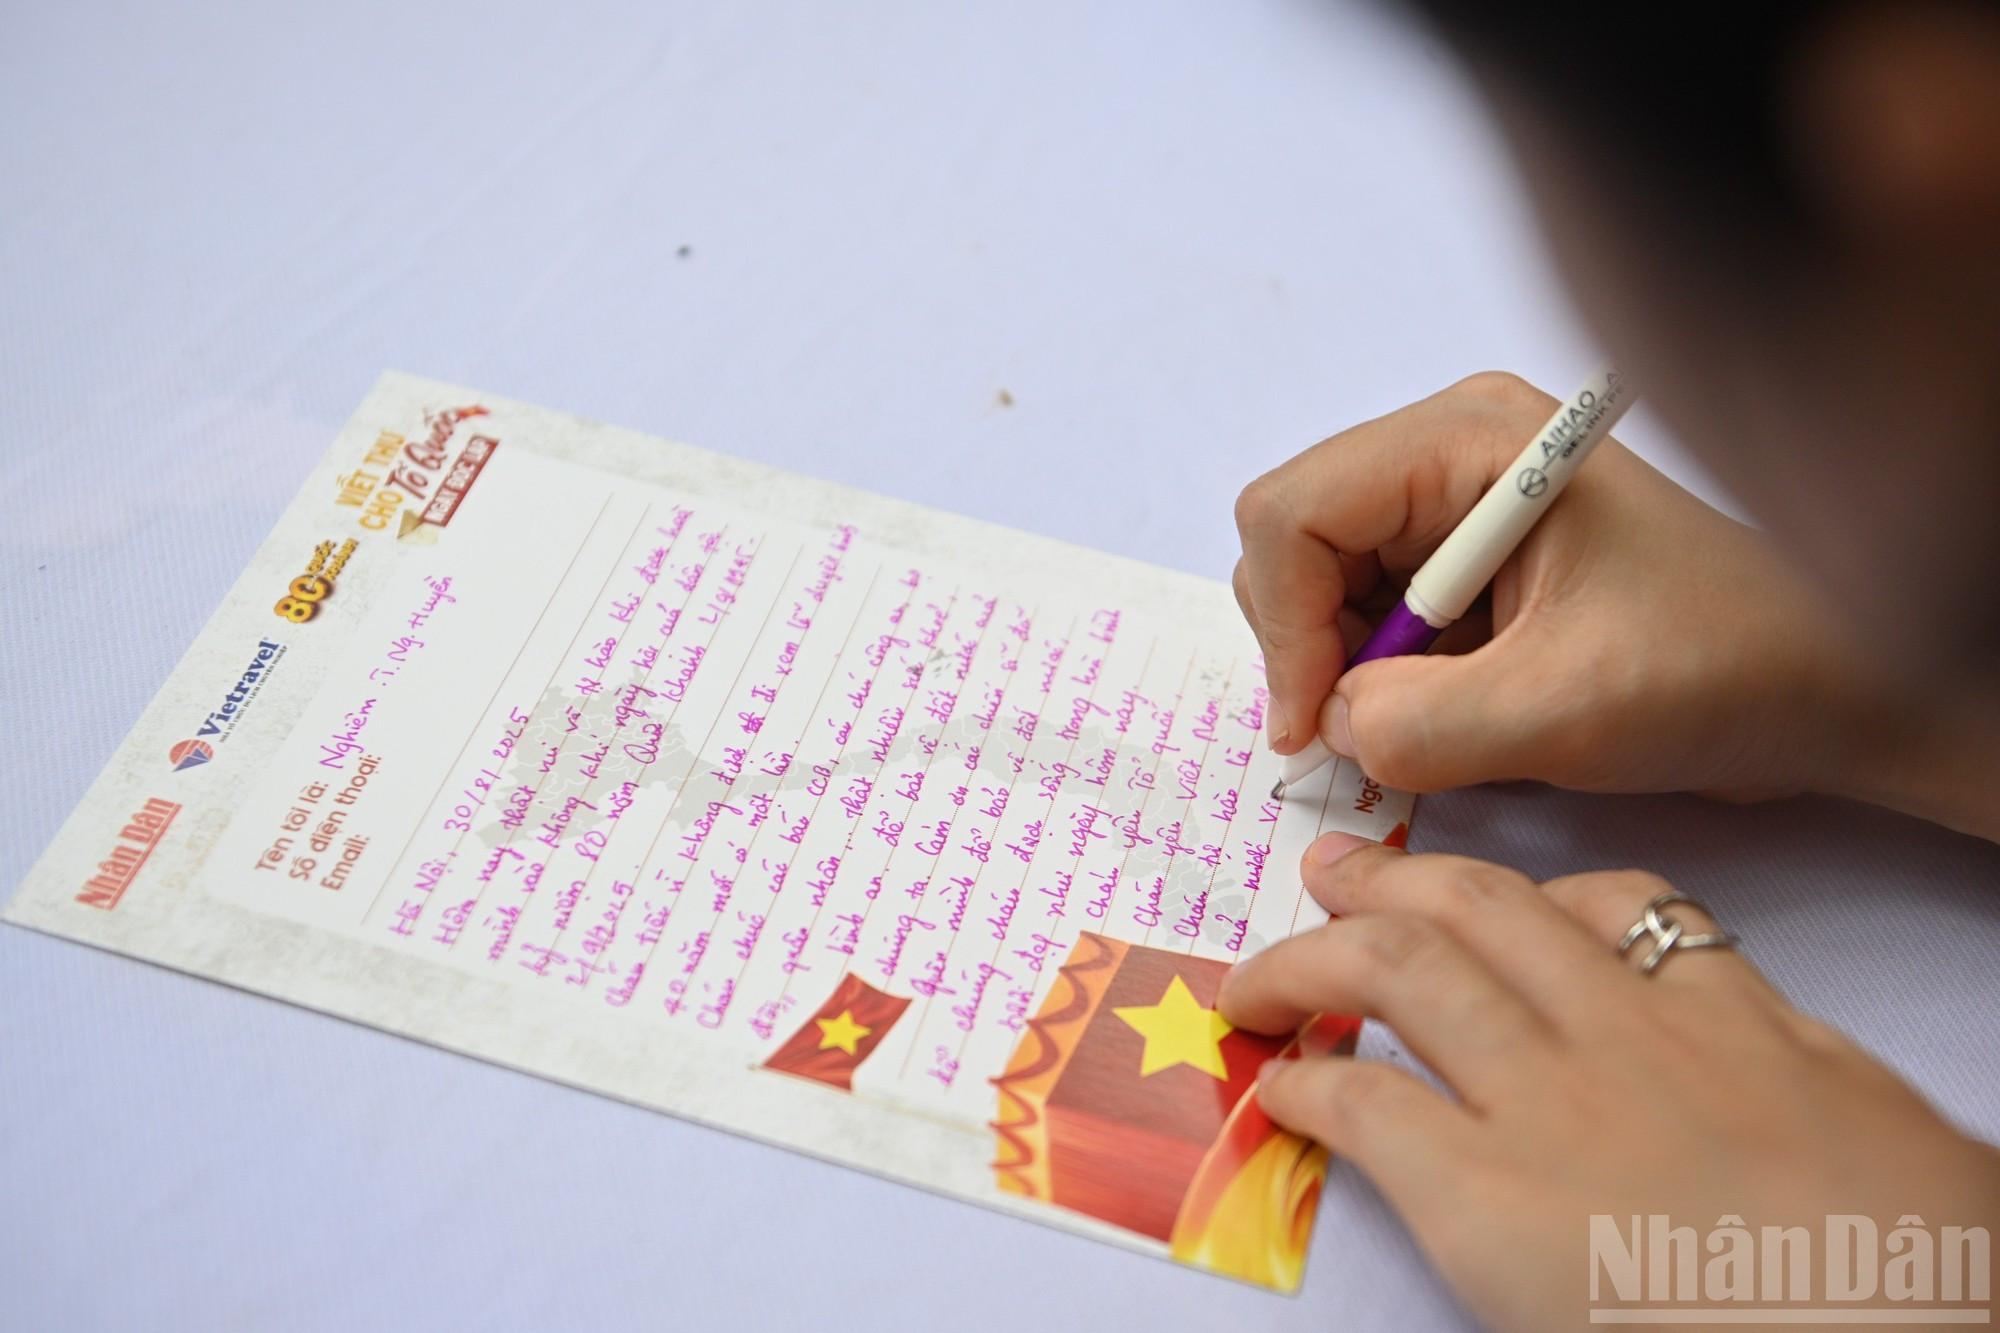 Nhân Dân
Vietravel
NHÀ TỔ CHỨC DU LỊCH CHUYÊN NGHIỆP
80 QUỐC KHÁNH
VIẾT THƯ
CHO TỔ QUỐC
NGÀY ĐỘC LẬP
Tên tôi là: Nghiêm .T. Ng. Huyền
Số điện thoại:
Email:
Hà Nội, 30/8/2025
Hôm nay thật vui và tự hào khi được hoà
mình vào không khí ngày hội của dân tộc
kỷ niệm 80 năm Quốc khánh 2/9/1945 -
2/9/2025.
Cháu tiếc vì không được đi xem lễ duyệt binh
năm mới có một lần.
Cháu chúc các bác CCB, các chú công an, bộ
đội, quân nhân... thật nhiều sức khoẻ
bình an. để bảo vệ đất nước của
chúng ta. Cảm ơn các chiến sĩ đã
quên mình để bảo vệ đất nước,
để chúng cháu được sống trong hoà bình
tươi đẹp như ngày hôm nay.
Cháu yêu Tổ quốc.
Cháu yêu Việt Nam.
Cháu tự hào là công
của nước Vi
Ngà
AIHAO
GEL INK PE
Nhân Dân